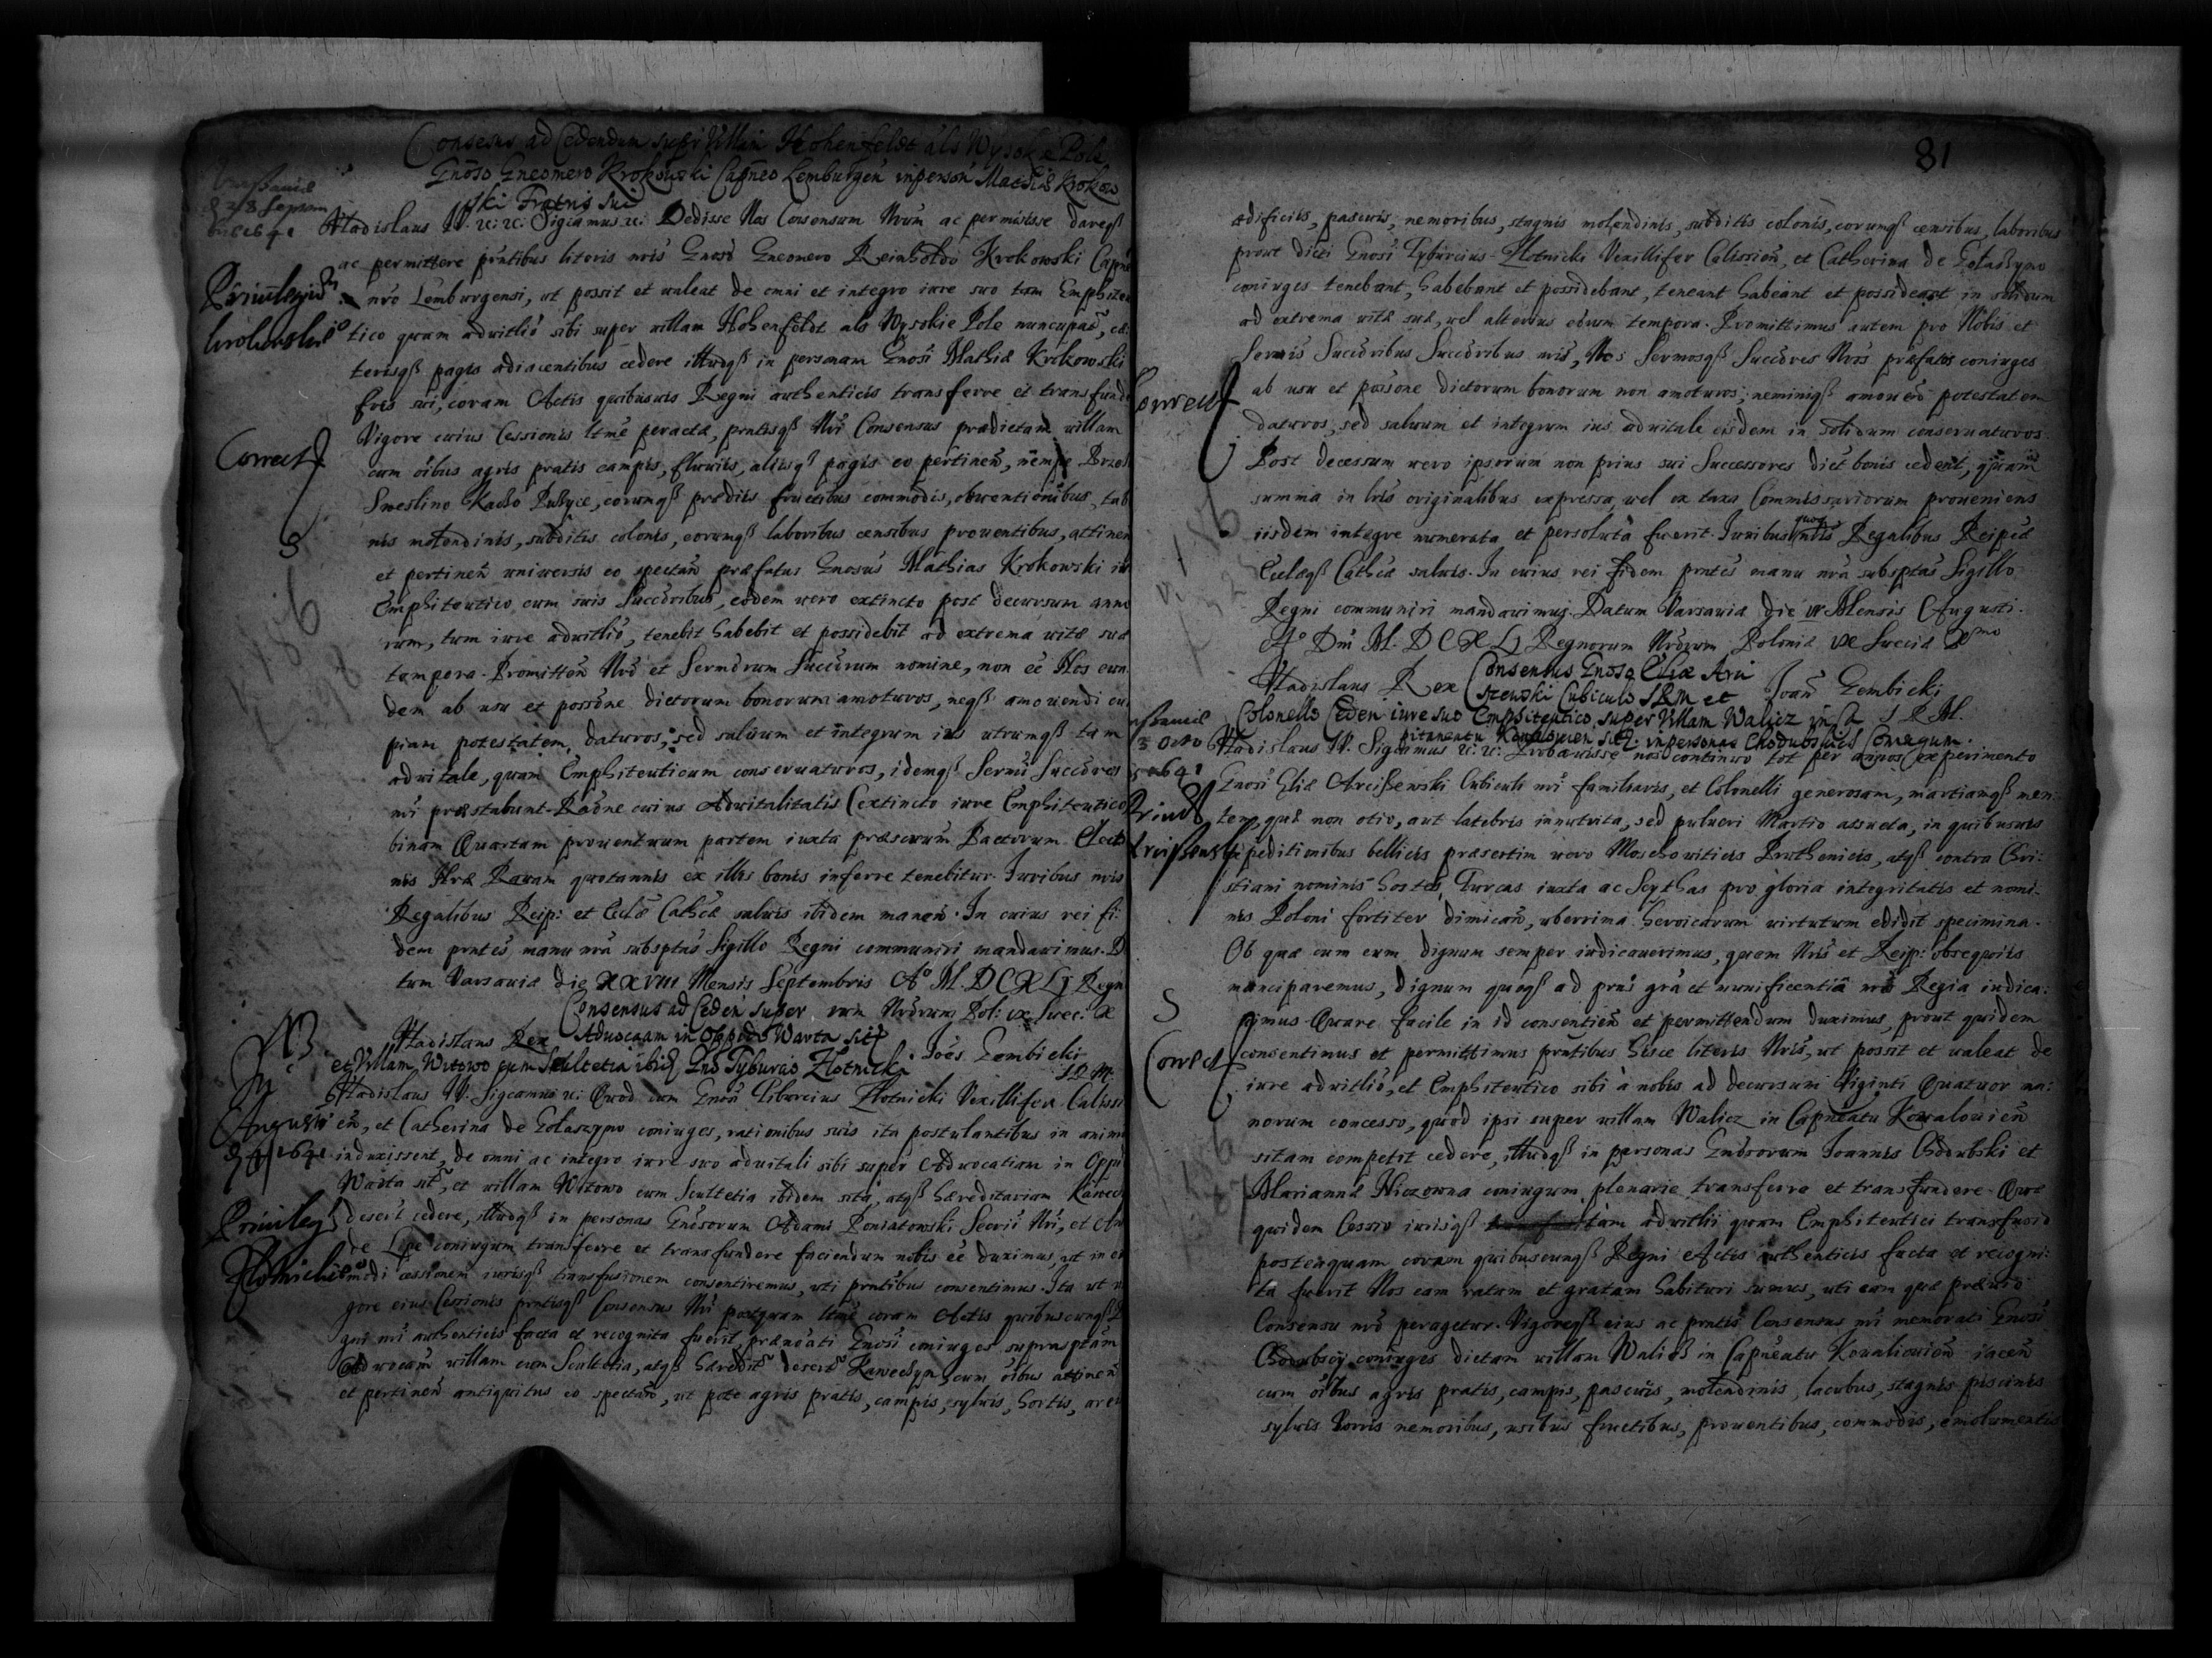 Consesus ad Cedendum super Villam Hohenfeldt als Wysokie Pole
Gnoso Gneomero Krokowski Capneo Lemburgen in person Mathiæ Krokow
ski Fratris sui
Varsauiæ
d 28 Septem
bris 1641
Vladislaus IV. etc: etc: Sigtamus etc: Dedisse Nos Consensum Nrum ac permisisse dareqß
ac permittere prntibus literis nris Gnoso Gneomero Reinholdo Krokowski Capne
Priuilegiu
Krokowski
nro Lemburgensi, ut possit et ualeat de omni et integro iure suo tam Emphiteu
tico quam aduitlio sibi super uillam Hohenfeldt als Wysokie Pole nuncupat, cæ
terisqß pagis adiacentibus cedere illudqß in personam Gnosi Mathiæ Krokowski
fris sui, coram Actis quibusuis Regni authenticis transferre et transfunde
Vigore cuius Cessionis ltme peractæ, prntisqß Nri Consensus prædictam uillam
Correct
cum oibus agris pratis campis, fluuiis, aliisqß pagis eo pertinen, nempe
Sweslino Kaczo, eorumqß prædiis fructibus commodis, obuentionibus, tab
nis molendinis, subditis colonis, eorumqß laboribus censibus prouentibus, attinen
S
et pertinen uniuersis eo spectan præfatus Gnosus Mathias Krokowski iu
Emphiteutico cum suis Succoribus, eodem uero extincto post decursum anno
rum, tum iure aduitlio, tenebit habebit et possidebit ad extrema uitæ suæ
tempora. Promitten Nro et Sermorum Succorum nomine, non ee Nos eun
dem ab usu et possone dictorum bonorum amoturos, neqß amouendi cu
piam potestatem daturos, sed saluum et integrum ius utrumqß tam
aduitale, quam Emphiteuticum conseruaturos, idemqß Sermi Succores
nri præstabunt. Raone cuius Aduitalitatis (extincto iure Emphiteutico
binam Quartam prouentuum partem iuxta præscrum Pactorum Electi
nis Nræ Rauam quotannis ex illis bonis inferre tenebitur. Iuribus nris
Regalibus Reip: et Ecclæ Cathcæ saluis ibidem manen. In cuius rei fi:
dem prntes manu nra subsptas Sigillo Regni communiri mandauimus. D
tum Varsauiæ die XXVIII Mensis Septembris Ao M.DCXLI Regn
Consensus ad Ceden super rum Nrorum Pol: IX Suec: X
Vladislaus Rex Aduocaam in Oppido Warta sit
et Villam Witowo cum Scultetia ibid Gno Tyburcio Złotnicki. Ioes Gembicki
S R M.
Vladislaus IV. Sigtamus etc: Quod cum Gnosi Tiburcius Złotnicki Vexillifer Calissi
Augusti
en, et Catherina de Gołaszyno coniuges, rationibus suis ita postulantibus in anim
1641
induxissent, de omni ac integro iure suo aduitali sibi super Aduocatiam in Oppi
Warta sit, et uillam Witowo cum Scultetia ibidem sita, atqß hæreditariam
Priuileg
desert cedere, illudqß in personas Gnosorum Adami Poniatowski Secrii Nri, et An
de Lipe coniugum transferre et transfundere faciendum nobis ee duximus, ut in ei
Złotnickie
modi cessionem iurisqß transfusionem consentiremus, uti prntibus consentimus. Ita ut ui
gore eius Cessionis prntisqß Consensus Nri postquam ltme coram Actis quibuscunqß R
gni nri authenticis facta et recognita fuerit, prænoati Gnosi coniuges suprasptam
Aduocaam uillam cum Scultetia, atqß hæredit desert cum oibus attinen
et pertinen antiquitus eo spectan, ut pote agris pratis, campis, syluis, hortis, areis
81
ædificiis, pascuis, nemoribus, stagnis molendinis, subditis colonis, eorumqß censibus, laboribus
prout dicti Gnosi Tyburcius Złotnicki Vexillifer Calissien, et Catherina de Gołaszyno
coniuges tenebant, habebant et possidebant, teneant habeant et possideant in solidum
ad extrema uitæ suæ, uel alterius eorum tempora. Promittimus autem pro Nobis et
Sermis Succoribus Succoribus nris, Nos Sermosqß Succores Nros præfatos coniuges
Correct
ab usu et possone dictorum bonorum non amoturos, neminiqß amouendi potestatem
daturos, sed saluum et integrum ius aduitale eisdem in solidum conseruaturos
Post decessum uero ipsorum non prius sui Successores dict bonis cedent, quam
summa in lris originalibus expressa, uel ex taxa Commissariorum proueniens
iisdem integre numerata et persoluta fuerit. Iuribus quoqß nris Regalibus Reipcæ
Eclæqß Cathcæ saluis. In cuius rei fidem prntes manu nra subsptas Sigillo
Regni communiri mandauimus. Datum Varsauiæ die VII Mensis Augusti.
Ao Dni M.DCXLI Regnorum Nrorum Poloniæ IX Sueciæ Xmo
Vladislaus Rex Consensus Gnoso Eliæ Arci
szewski Cubiculo S R M et Ioan Gembicki
Colonello Ceden iure suo Emphiteutico super Villam Walicz in Ca S R M.
pitaneatu Kowalowien sit: in personas Chodubskich Coniugum.
Varsauiæ
3 Octo
1641
Vladislaus IV. Sigtamus etc: etc: Probauisse nos continuo tot per annos experimento
Gnosi Eliæ Arciszewski Cubiculi nri familiaris, et Colonelli generosam, martiamqß men
Priuil
tem, quæ non otio, aut latebris innutrita, sed pulueri Martio assueta, in quibusuis
Arciszewsk
expeditionibus bellicis præsertim uero Moschouiticis Pruthenicis, atqß contra Chri:
stiani nominis hostes, Turcas iuxta ac Scythas pro gloria integritatis et nomi-
nis Poloni fortiter dimican, uberrima heroicarum uirtutum edidit specimina.
Ob quæ cum eum dignum semper iudicauerimus, quem Nris et Reip: obsequiis
manciparemus, dignum quoqß ad prns gra et munificentia nra Regia iudica:
S
uimus. Quare facile in id consentien et permittendum duximus, prout quidem
Correct
consentimus et permittimus prntibus hisce literis Nris, ut possit et ualeat de
iure aduitlio, et Emphiteutico sibi à nobis ad decursum Viginti Quatuor an:
norum concesso, quod ipsi super uillam Walicz in Capneatu Kowalouien
sitam competit cedere, illudqß in personas Gnosorum Ioannis Chodubski et
Mariannæ Niczowna coniugum plenarie transferre et transfundere. Quæ
quidem Cessio iurisqß tam aduitlii quam Emphiteutici transfusio
posteaquam coram quibuscunqß Regni Actis authenticis facta et recogni:
ta fuerit Nos eam ratam et gratam habituri sumus, uti eam quæ præuio
Consensu nro peragetur. Vigoreqß eius ac prntis Consensus nri memorati Gnosi
Chodubscy coniuges dictam uillam Walicz in Capneatu Kowalicuien iacen
cum oibus agris pratis, campis, pascuis, molendinis, lacubus, stagnis piscinis
syluis borris nemoribus, usibus fructibus, prouentibus, commodis, emolumentis